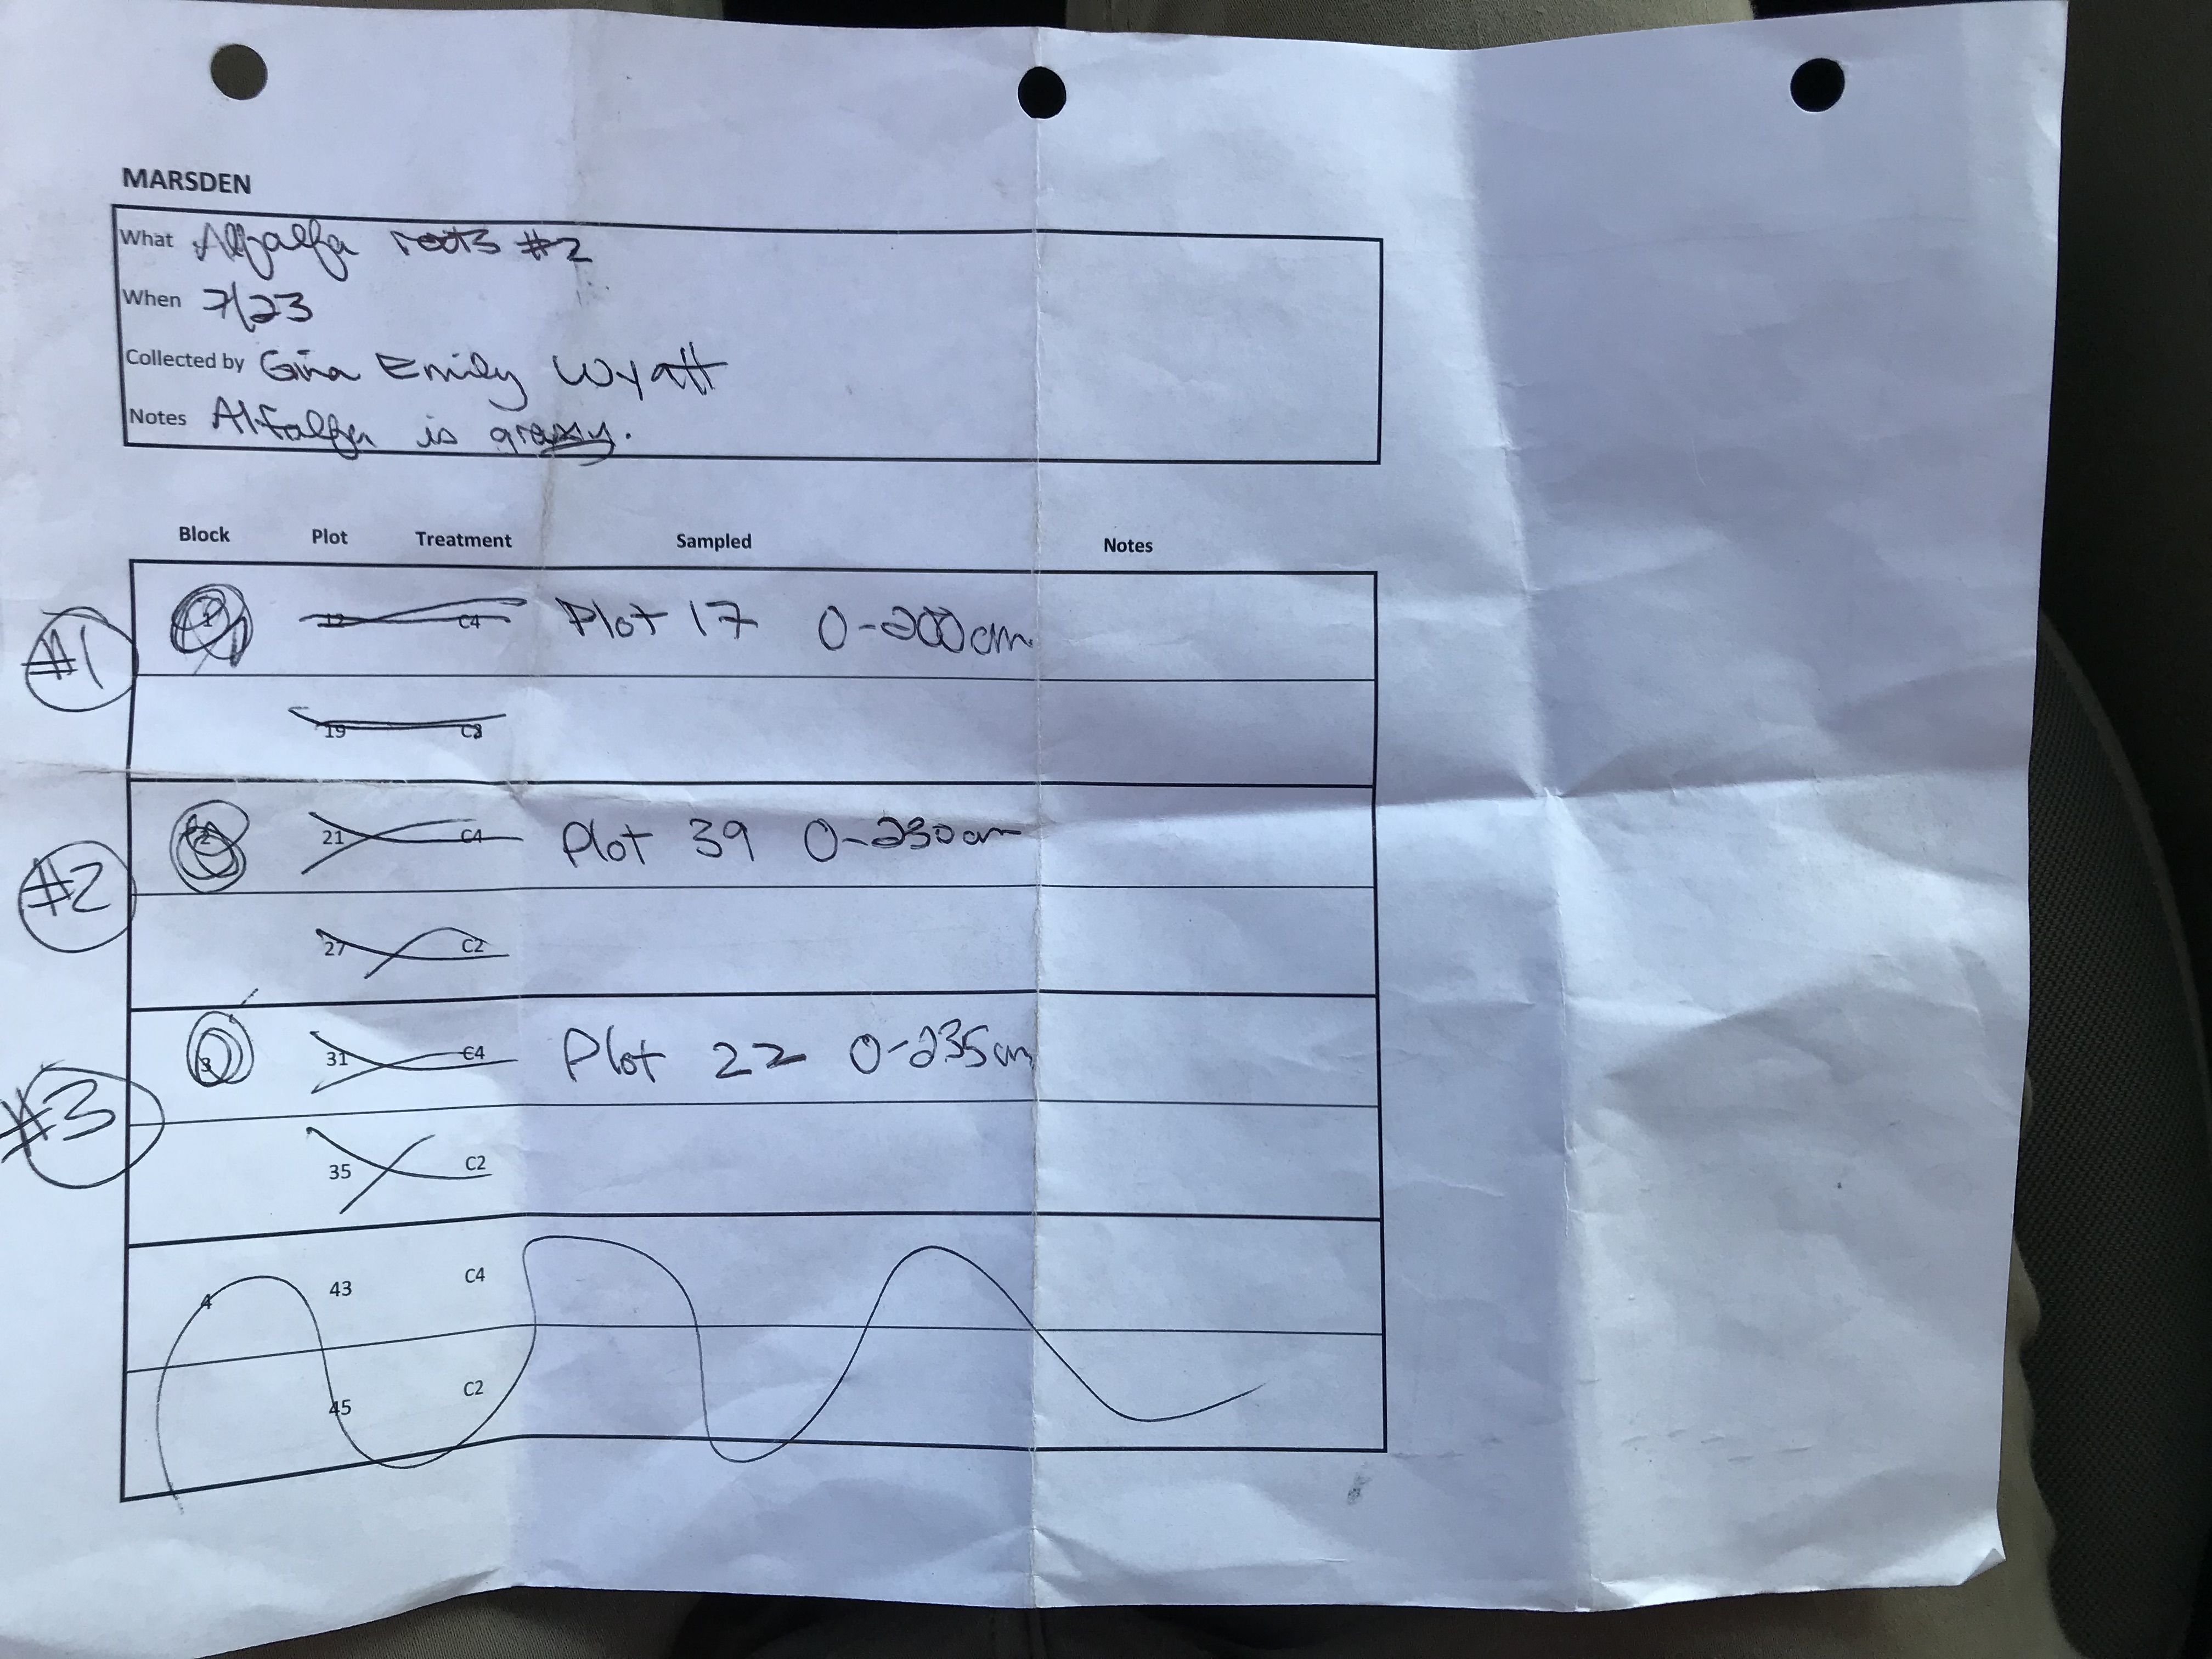 MARSDEN
What Alfalfa roots #2
When 7/23
Collected by Gina Emily Wyatt
Notes Alfalfa is
Block Plot Treatment Sampled Notes
#1 1 12 C4 Plot 17 0-200cm
19 C2
#2 2 21 C4 Plot 39 0-230cm
27 C2
#3 3 31 C4 Plot 22 0-235cm
35 C2
4 43 C4
45 C2